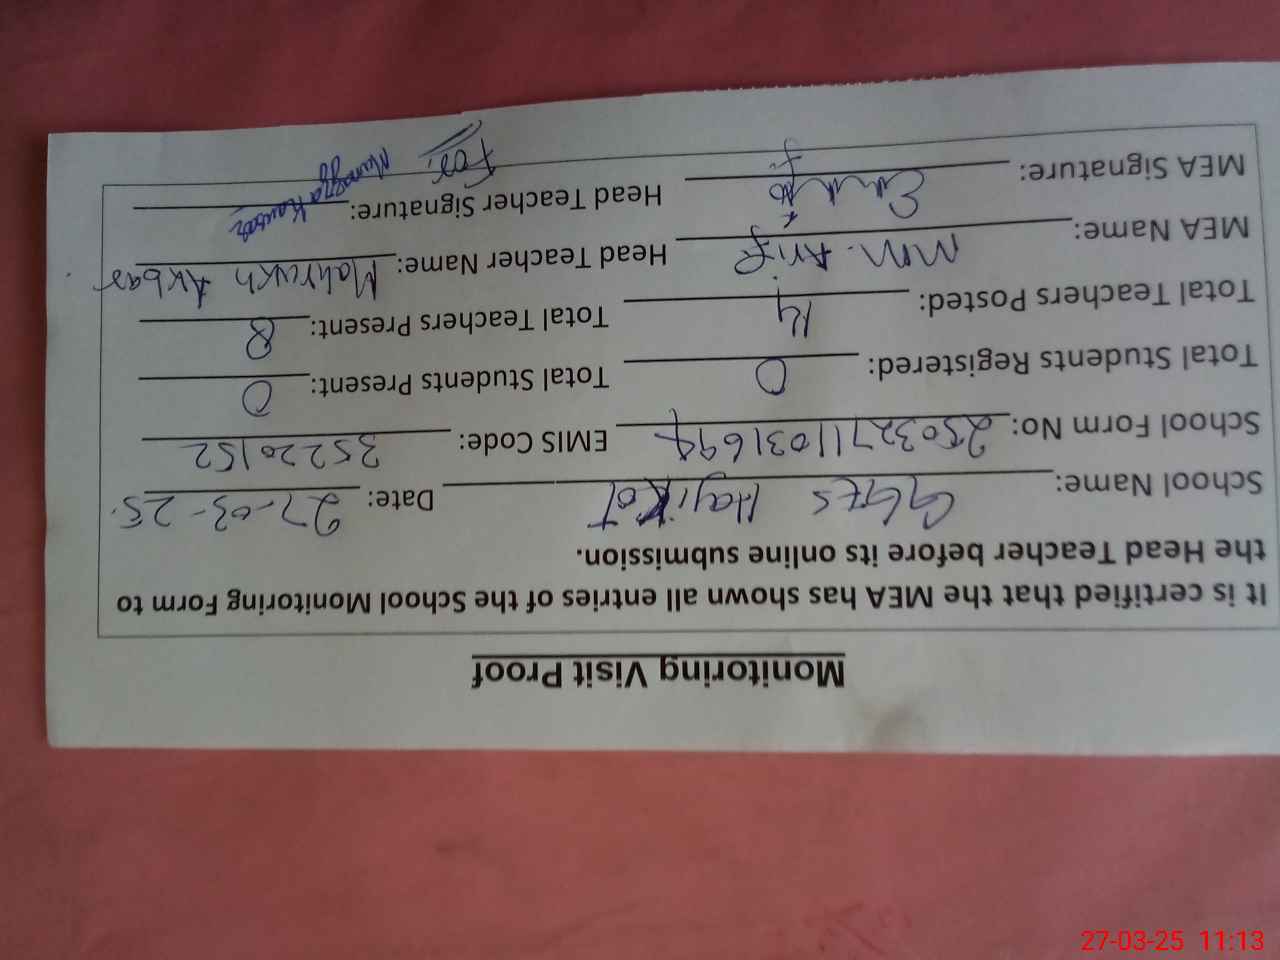 Monitoring Visit Proof
It is certified that the MEA has shown all entries of the School Monitoring Form to
the Head Teacher before its online submission.
School Name: GGES Haji Kot Date: 27-03-25
School Form No: 25032711031694 EMIS Code: 35220152
Total Students Registered: 0 Total Students Present: 0
Total Teachers Posted: 14 Total Teachers Present: 8
MEA Name: MM. Arif Head Teacher Name: Mahrukh Akbar
MEA Signature: Head Teacher Signature: Kausar
For:
27-03-25 11:13